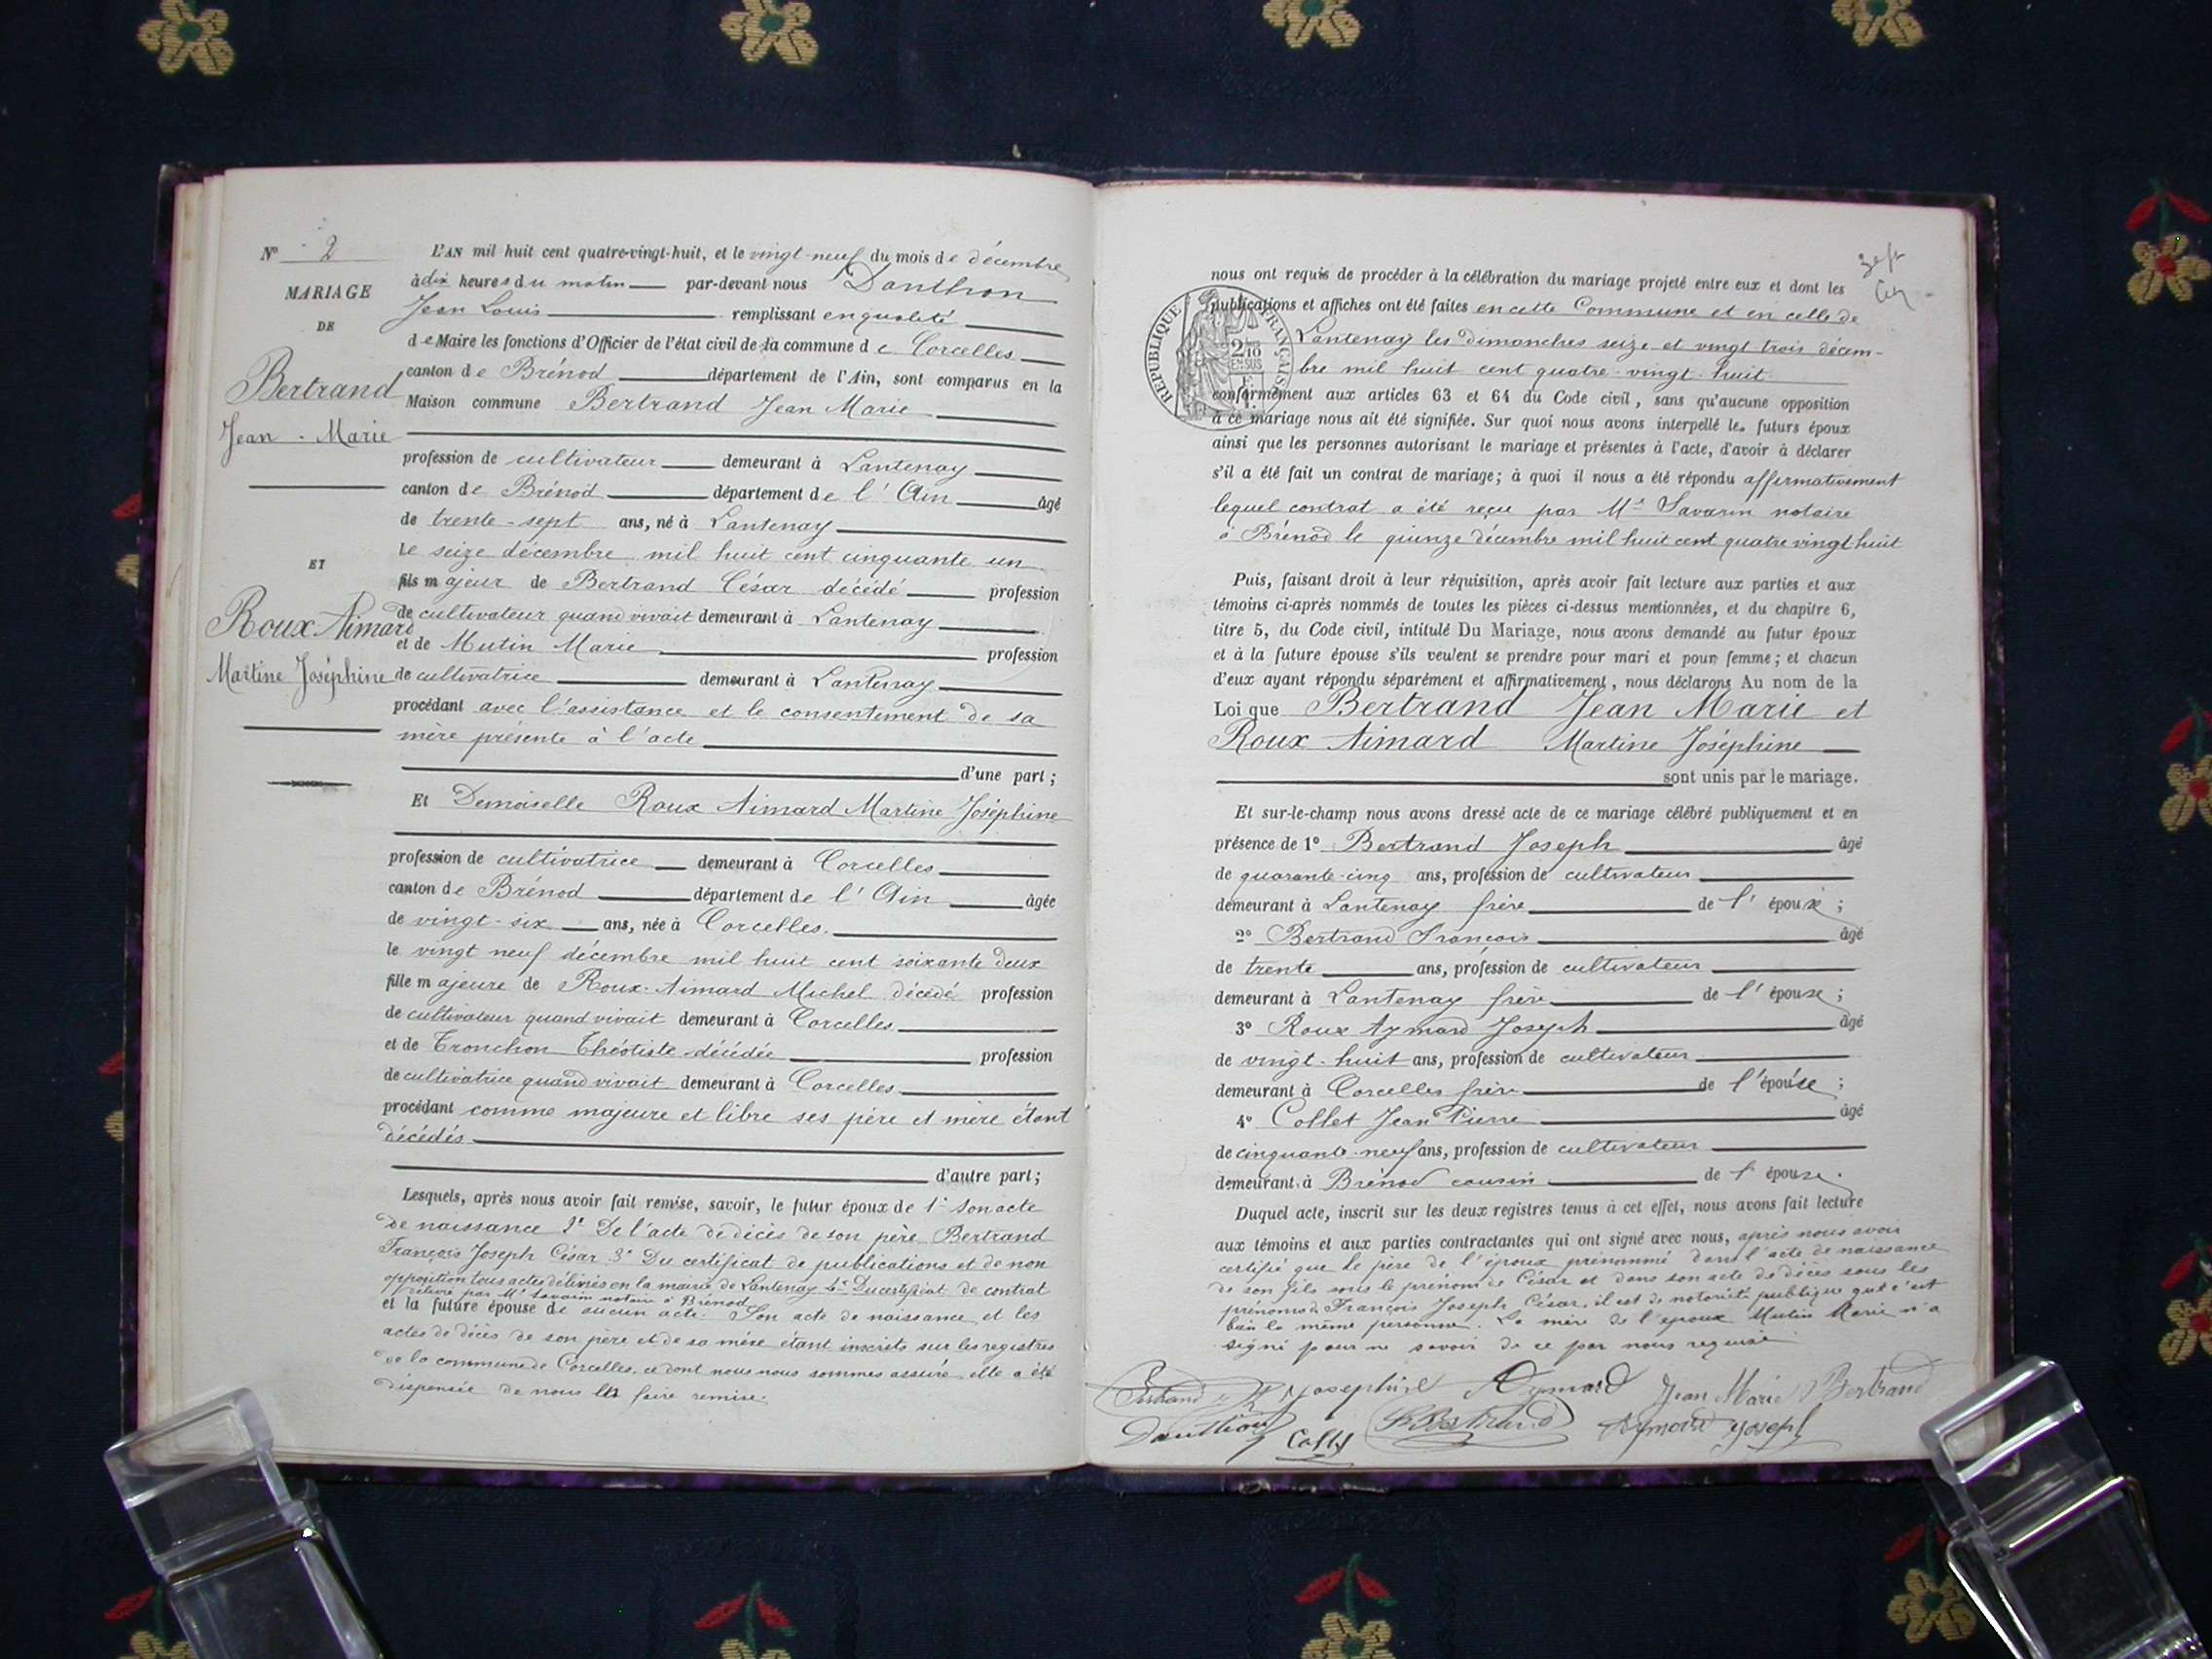 N° 2
MARIAGE
DE
Bertrand
Jean-Marie
ET
Roux-Aimard
Martine Joséphine
L'AN mil huit cent quatre-vingt-huit, et le vingt-neuf du mois de décembre
à dix heures du matin par-devant nous Danthon
Jean Louis remplissant en qualité
de Maire les fonctions d'Officier de l'état civil de la commune de Corcelles
canton de Brénod département de l'Ain, sont comparus en la
Maison commune Bertrand Jean Marie
profession de cultivateur demeurant à Lantenay
canton de Brénod département de l'Ain âgé
de trente-sept ans, né à Lantenay
Le seize décembre mil huit cent cinquante un
fils majeur de Bertrand César décédé profession
de cultivateur quand vivait demeurant à Lantenay
et de Mutin Marie profession
de cultivatrice demeurant à Lantenay
procédant avec l'assistance et le consentement de sa
mère présente à l'acte
d'une part;
Et Demoiselle Roux Aimard Martine Joséphine
profession de cultivatrice demeurant à Corcelles
canton de Brénod département de l'Ain âgée
de vingt-six ans, née à Corcelles.
le vingt neuf décembre mil huit cent soixante deux
fille majeure de Roux-Aimard Michel décédé profession
de cultivateur quand vivait demeurant à Corcelles
et de Tronchon Théotiste décédée profession
de cultivatrice quand vivait demeurant à Corcelles
procédant comme majeure et libre ses père et mère étant
décédés
d'autre part;
Lesquels, après nous avoir fait remise, savoir, le futur époux de 1° Son acte
de naissance 2° De l'acte de décès de son père Bertrand
François Joseph César 3° Du certificat de publications et de non
opposition tous actes délivrés en la mairie de Lantenay 4° Du certificat de contrat
délivré par Me Savarin notaire à Brénod
et la future épouse de aucun acte. Son acte de naissance et les
actes de décès de son père et de sa mère étant inscrits sur les registres
de la commune de Corcelles, ce dont nous nous sommes assuré, elle a été
dispensée de nous les faire remise.
nous ont requis de procéder à la célébration du mariage projeté entre eux et dont les
publications et affiches ont été faites en cette Commune et en celle de
Lantenay les dimanches seize et vingt trois décem-
bre mil huit cent quatre-vingt-huit
REPUBLIQUE FRANÇAISE
2/10 EN SUS
conformément aux articles 63 et 64 du Code civil, sans qu'aucune opposition
à ce mariage nous ait été signifiée. Sur quoi nous avons interpellé les futurs époux
ainsi que les personnes autorisant le mariage et présentes à l'acte, d'avoir à déclarer
s'il a été fait un contrat de mariage; à quoi il nous a été répondu affirmativement
lequel contrat a été reçu par Me Savarin notaire
à Brénod le quinze décembre mil huit cent quatre vingt huit
Puis, faisant droit à leur réquisition, après avoir fait lecture aux parties et aux
témoins ci-après nommés de toutes les pièces ci-dessus mentionnées, et du chapitre 6,
titre 5, du Code civil, intitulé Du Mariage, nous avons demandé au futur époux
et à la future épouse s'ils veulent se prendre pour mari et pour femme; et chacun
d'eux ayant répondu séparément et affirmativement, nous déclarons Au nom de la
Loi que Bertrand Jean Marie et
Roux Aimard Martine Joséphine
sont unis par le mariage.
Et sur-le-champ nous avons dressé acte de ce mariage célébré publiquement et en
présence de 1° Bertrand Joseph âgé
de quarante-cinq ans, profession de cultivateur
demeurant à Lantenay frère de l'époux;
2° Bertrand François âgé
de trente ans, profession de cultivateur
demeurant à Lantenay frère de l'épouse;
3° Roux Aymard Joseph âgé
de vingt-huit ans, profession de cultivateur
demeurant à Corcelles frère de l'épouse;
4° Collet Jean Pierre âgé
de cinquante-neuf ans, profession de cultivateur
demeurant à Brénod cousin de l'épouse.
Duquel acte, inscrit sur les deux registres tenus à cet effet, nous avons fait lecture
aux témoins et aux parties contractantes qui ont signé avec nous, après nous avoir
certifié que le père de l'époux prénommé dans l'acte de naissance
de son fils sous le prénom de César et dans son acte de décès sous les
prénoms de François Joseph César, il est de notoriété publique que c'est
bien la même personne. La mère de l'époux Mutin Marie n'a
signé pour ne savoir de ce par nous requise
Bertrand Josephine Aymard Jean Marie Bertrand
Danthon Collet Bertrand Aymard Joseph